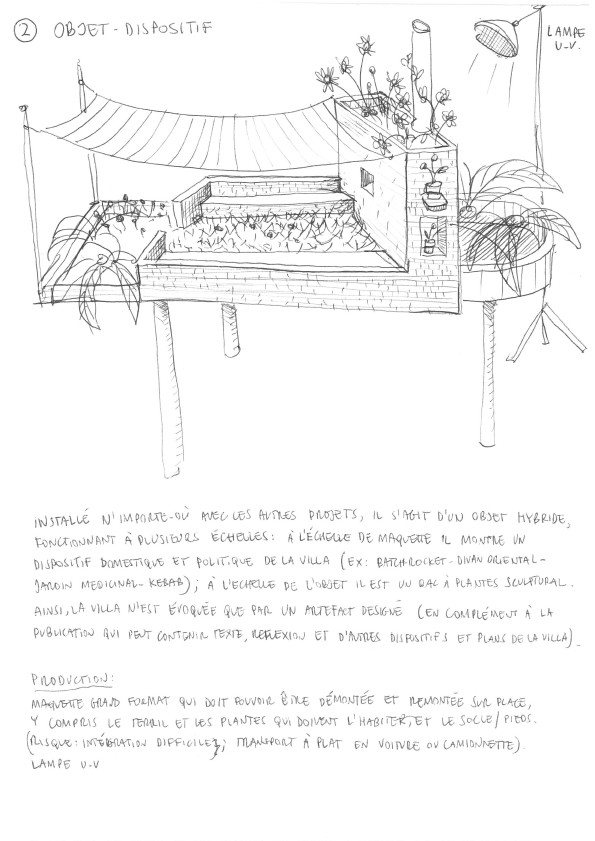 2 OBJET-DISPOSITIF
LAMPE
U-V.
INSTALLÉ N'IMPORTE-OÙ AVEC LES AUTRES PROJETS, IL S'AGIT D'UN OBJET HYBRIDE,
FONCTIONNANT À PLUSIEURS ÉCHELLES: À L'ÉCHELLE DE MAQUETTE IL MONTRE UN
DISPOSITIF DOMESTIQUE ET POLITIQUE DE LA VILLA (EX: BATCH-ROCKET-DIVAN ORIENTAL-
JARDIN MEDICINAL-KEBAB); À L'ECHELLE DE L'OBJET IL EST UN BAC À PLANTES SCULPTURAL.
AINSI, LA VILLA N'EST ÉVOQUÉE QUE PAR UN ARTEFACT DESIGNÉ (EN COMPLÉMENT À LA
PUBLICATION QUI PEUT CONTENIR TEXTE, REFLEXION ET D'AUTRES DISPOSITIFS ET PLANS DE LA VILLA).
PRODUCTION:
MAQUETTE GRAND FORMAT QUI DOIT POUVOIR ÊTRE DÉMONTÉE ET REMONTÉE SUR PLACE,
Y COMPRIS LE TERRIL ET LES PLANTES QUI DOIVENT L'HABITER, ET LE SOCLE/PIEDS.
(RISQUE: INTÉGRATION DIFFICILE); TRANSPORT À PLAT EN VOITURE OU CAMIONNETTE).
LAMPE U-V